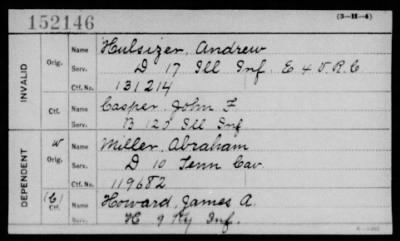 152146
(3-H-4)
INVALID
Orig. Name Hulsizer, Andrew
Serv. D 17 Ill Inf. E 4 V.R.C
Ctf. No. 131214
Ctf. Name Casper, John F
Serv. B 120 Ill Inf
DEPENDENT
W Orig. Name Miller, Abraham
Serv. D 10 Tenn Cav
Ctf. No. 119682
(C) Ctf. Name Howard, James A.
Serv. H 9 Ky Inf.